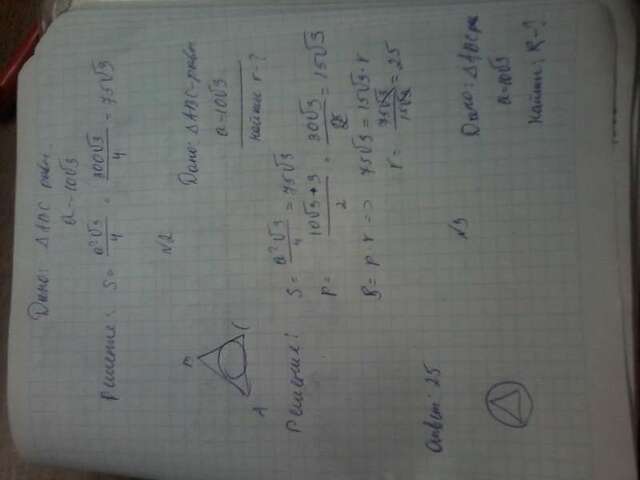 Дано: ΔABC равн.
a = 10√3
Решение: S = a²√3/4 = 300√3/4 = 75√3
N2
Дано: ΔABC-равн
a=10√3
Найти r-?
B
A
C
Решение:
S = a²√3/4 = 75√3
p = 10√3·3/2 = 30√3/2 = 15√3
S = p·r => 75√3 = 15√3·r
r = 75√3/15√3 = 25
Ответ: 25
N3
Дано: ΔABC
a=10√3
Найти: R-?